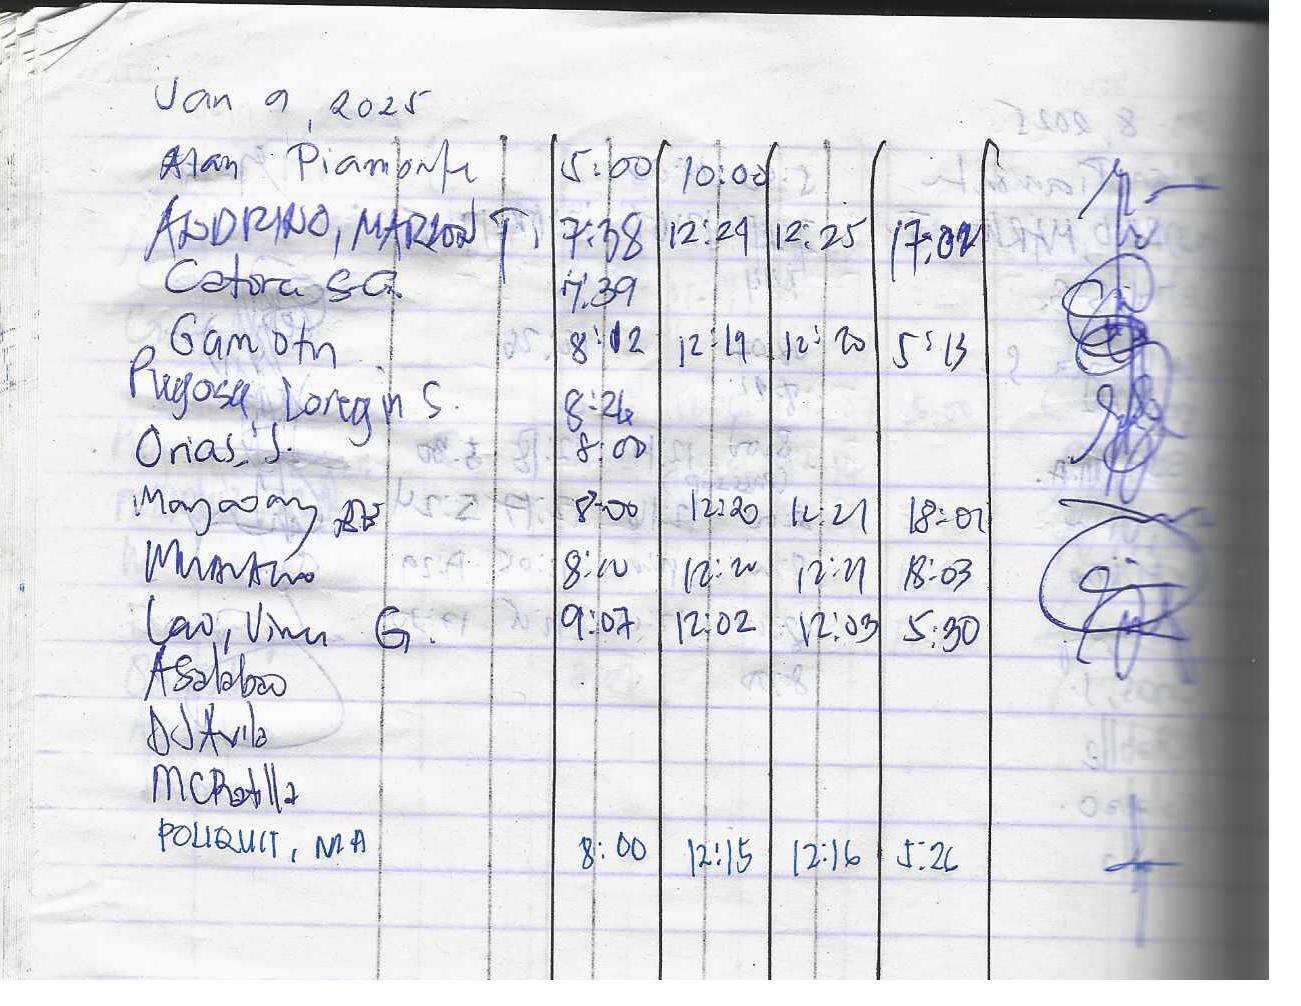 Jan 9, 2025
Alan Piamonte 5:00 10:00
ANDRINO, MARLON T. 7:38 12:24 12:25 17:02
Catora S.G. 7:39
Gamotn 8:12 12:19 12:20 5:13
Pugosa Loregin S. 8:24
Orias, J. 8:00
8:00 12:20 12:21 18:01
8:00 12:20 12:21 18:03
Lao, Vinu G. 9:07 12:02 12:03 5:30
Asalabao
DJAvila
MCRotilla
POLIQUIT, MA 8:00 12:15 12:16 5:26